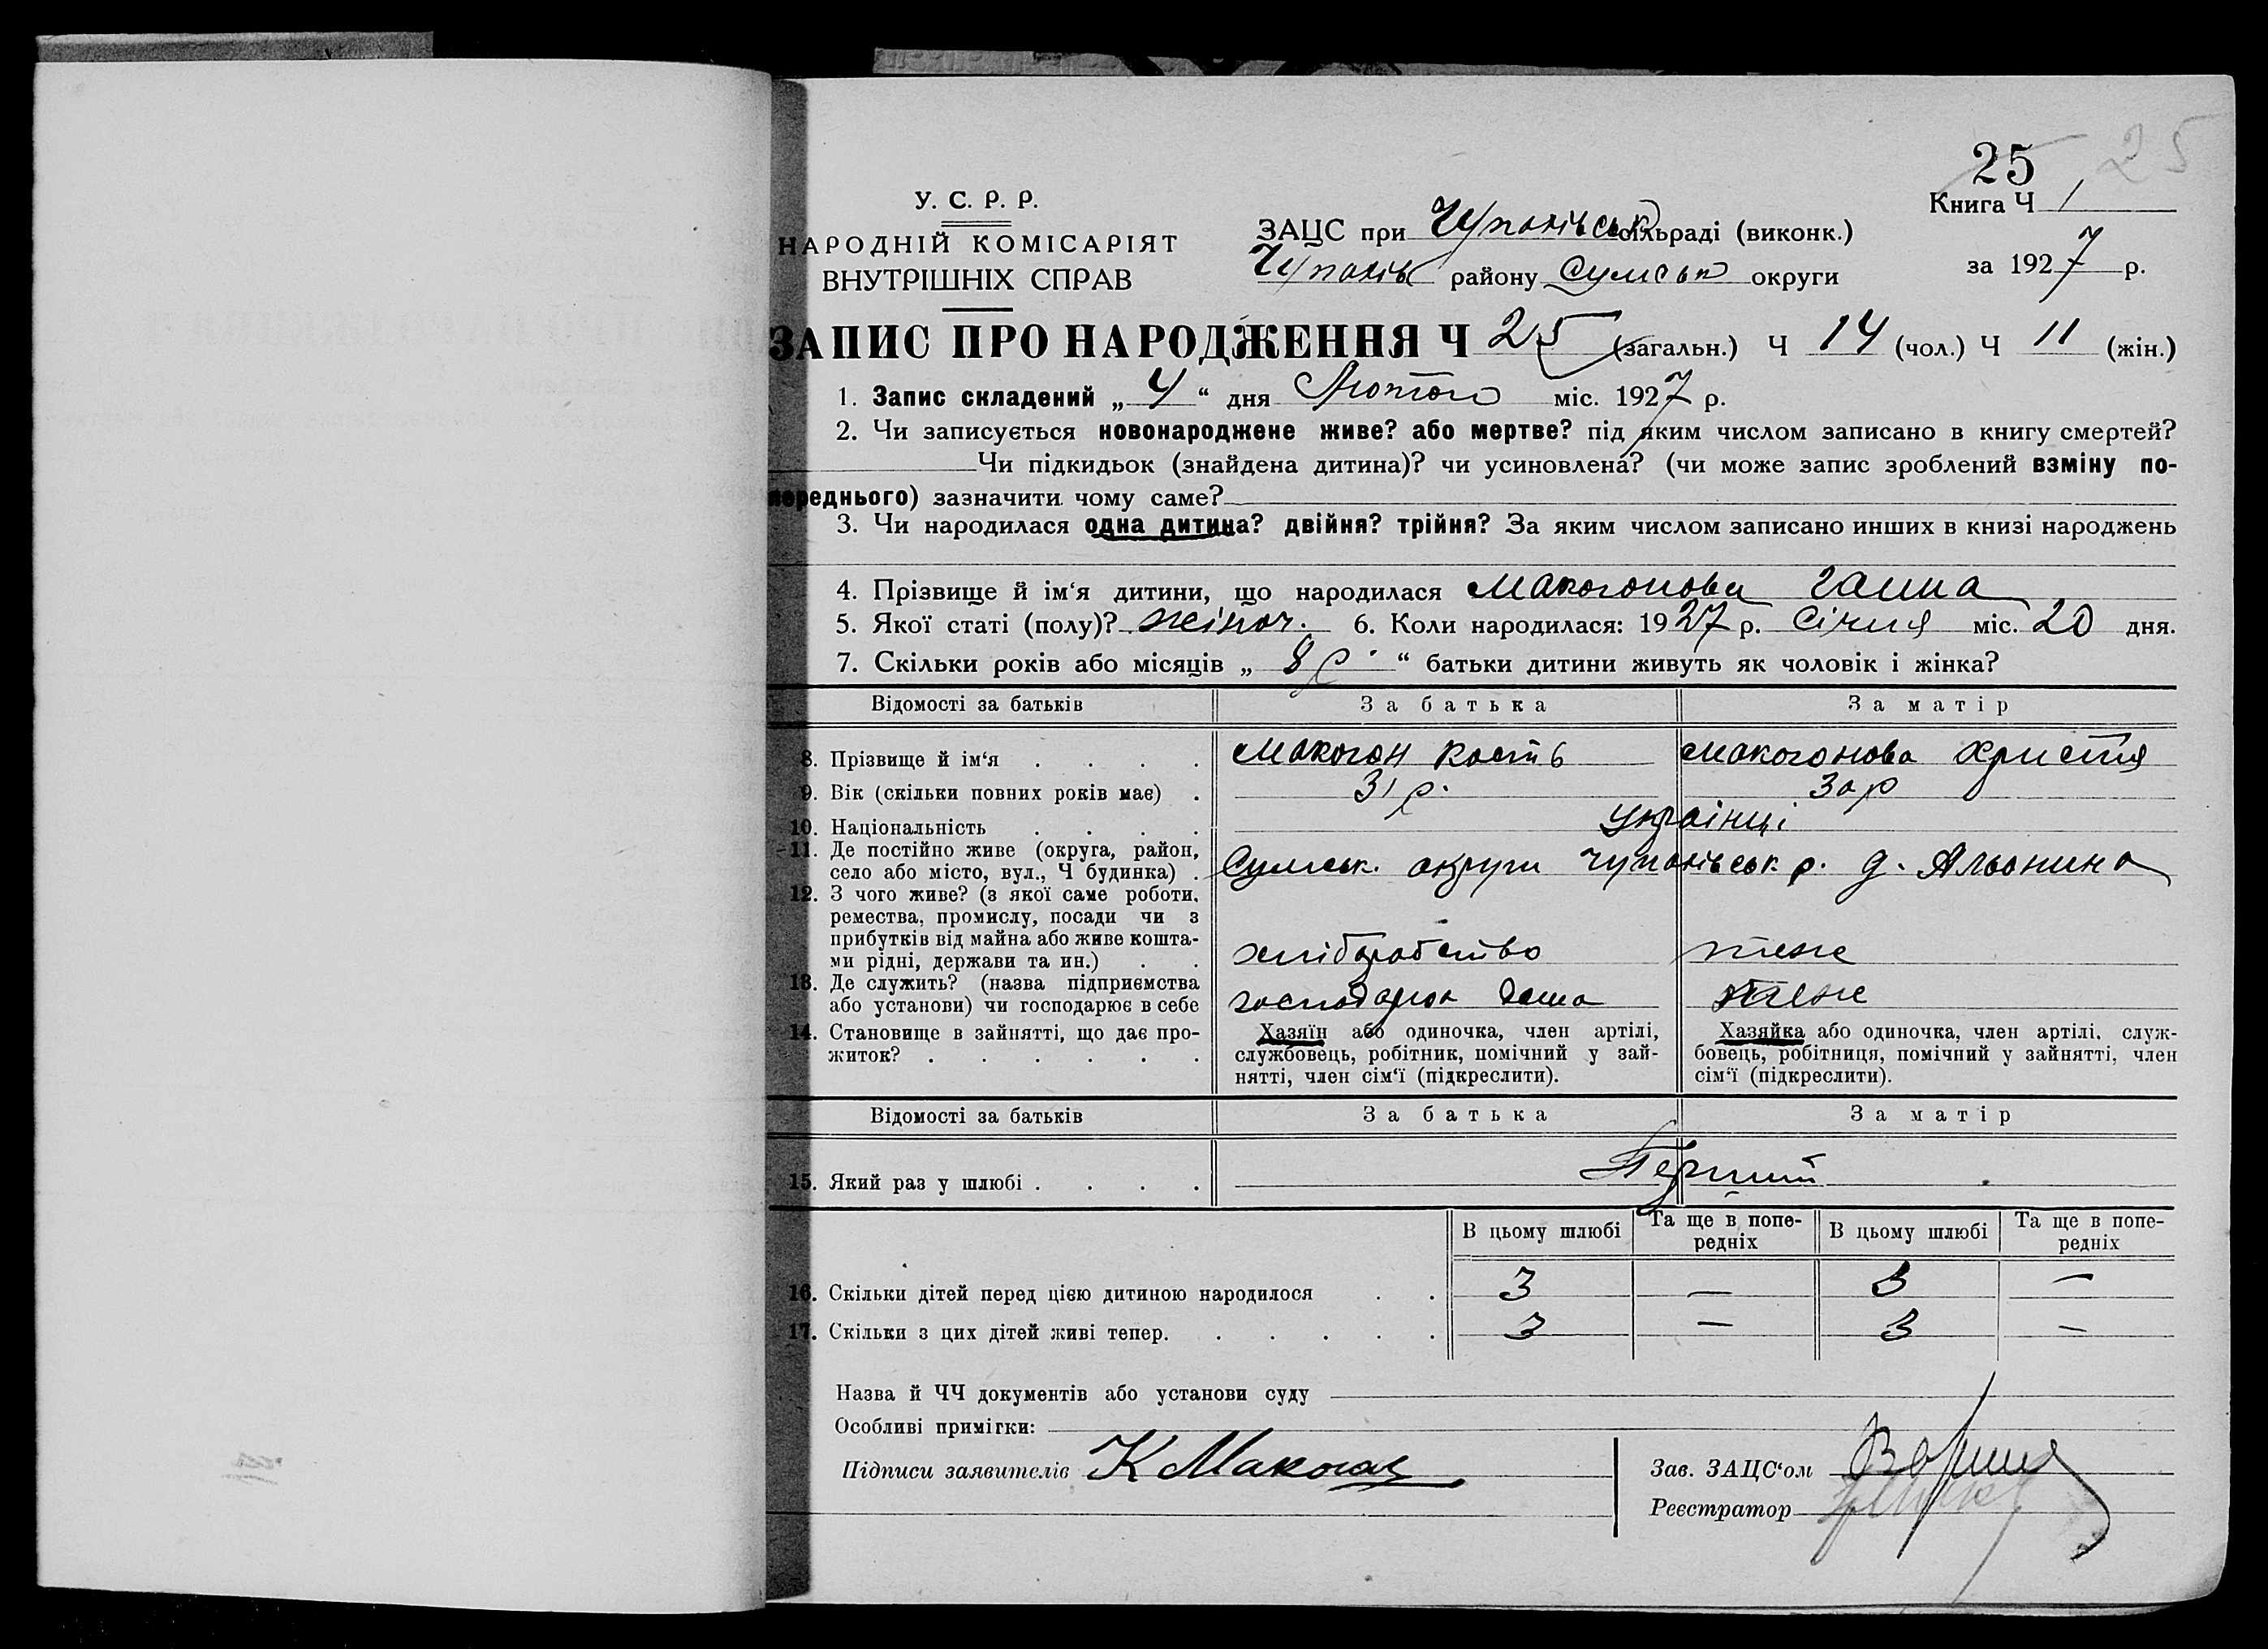 25 25
Книга Ч 1
У. С. Р. Р.
НАРОДНІЙ КОМІСАРІЯТ
ВНУТРІШНІХ СПРАВ
ЗАЦС при Чупахівськ сільраді (виконк.)
Чупахів району Сумськ округи
за 1927 р.
ЗАПИС ПРО НАРОДЖЕННЯ Ч 25 (загальн.) Ч 14 (чол.) Ч 11 (жін.)
1. Запис складений „ 4 “ дня Лютого міс. 1927 р.
2. Чи записується новонароджене живе? або мертве? під яким числом записано в книгу смертей?
Чи підкидьок (знайдена дитина)? чи усиновлена? (чи може запис зроблений взміну по-
переднього) зазначити чому саме?
3. Чи народилася одна дитина? двійня? трійня? За яким числом записано инших в книзі народжень
4. Прізвище й ім‘я дитини, що народилася Макогонова Ганна
5. Якої статі (полу)? жіноч. 6. Коли народилася: 1927 р. Січня міс. 20 дня.
7. Скільки років або місяців „ 8 р. “ батьки дитини живуть як чоловік і жінка?
Відомості за батьків За батька За матір
8. Прізвище й ім‘я . . . . Макогон Кость Макогонова Христя
9. Вік (скільки повних років має) . 31 р. 30 р
10. Національність . . . . Українці
11. Де постійно живе (округа, район,
село або місто, вул., Ч будинка) . Сумськ. округи Чупахівськ. р. д. Альонина
12. З чого живе? (з якої саме роботи,
ремества, промислу, посади чи з
прибутків від майна або живе кошта-
ми рідні, держави та ин.) . . хліборобство теже
13. Де служить? (назва підприємства
або установи) чи господарює в себе господарює дома теже
14. Становище в зайнятті, що дає про-
житок? . . . . . .
Хазяїн або одиночка, член артілі,
службовець, робітник, помічний у зай-
нятті, член сім‘ї (підкреслити).
Хазяйка або одиночка, член артілі, служ-
бовець, робітниця, помічний у зайнятті, член
сім‘ї (підкреслити).
Відомості за батьків За батька За матір
15. Який раз у шлюбі . . . . Перший
В цьому шлюбі Та ще в попе-
редніх В цьому шлюбі Та ще в попе-
редніх
16. Скільки дітей перед цією дитиною народилося . . 3 — 3 —
17. Скільки з цих дітей живі тепер. . . . . . 3 — 3 —
Назва й ЧЧ документів або установи суду
Особливі примітки:
Підписи заявителів К Макогон
Зав. ЗАЦС‘ом
Реєстратор